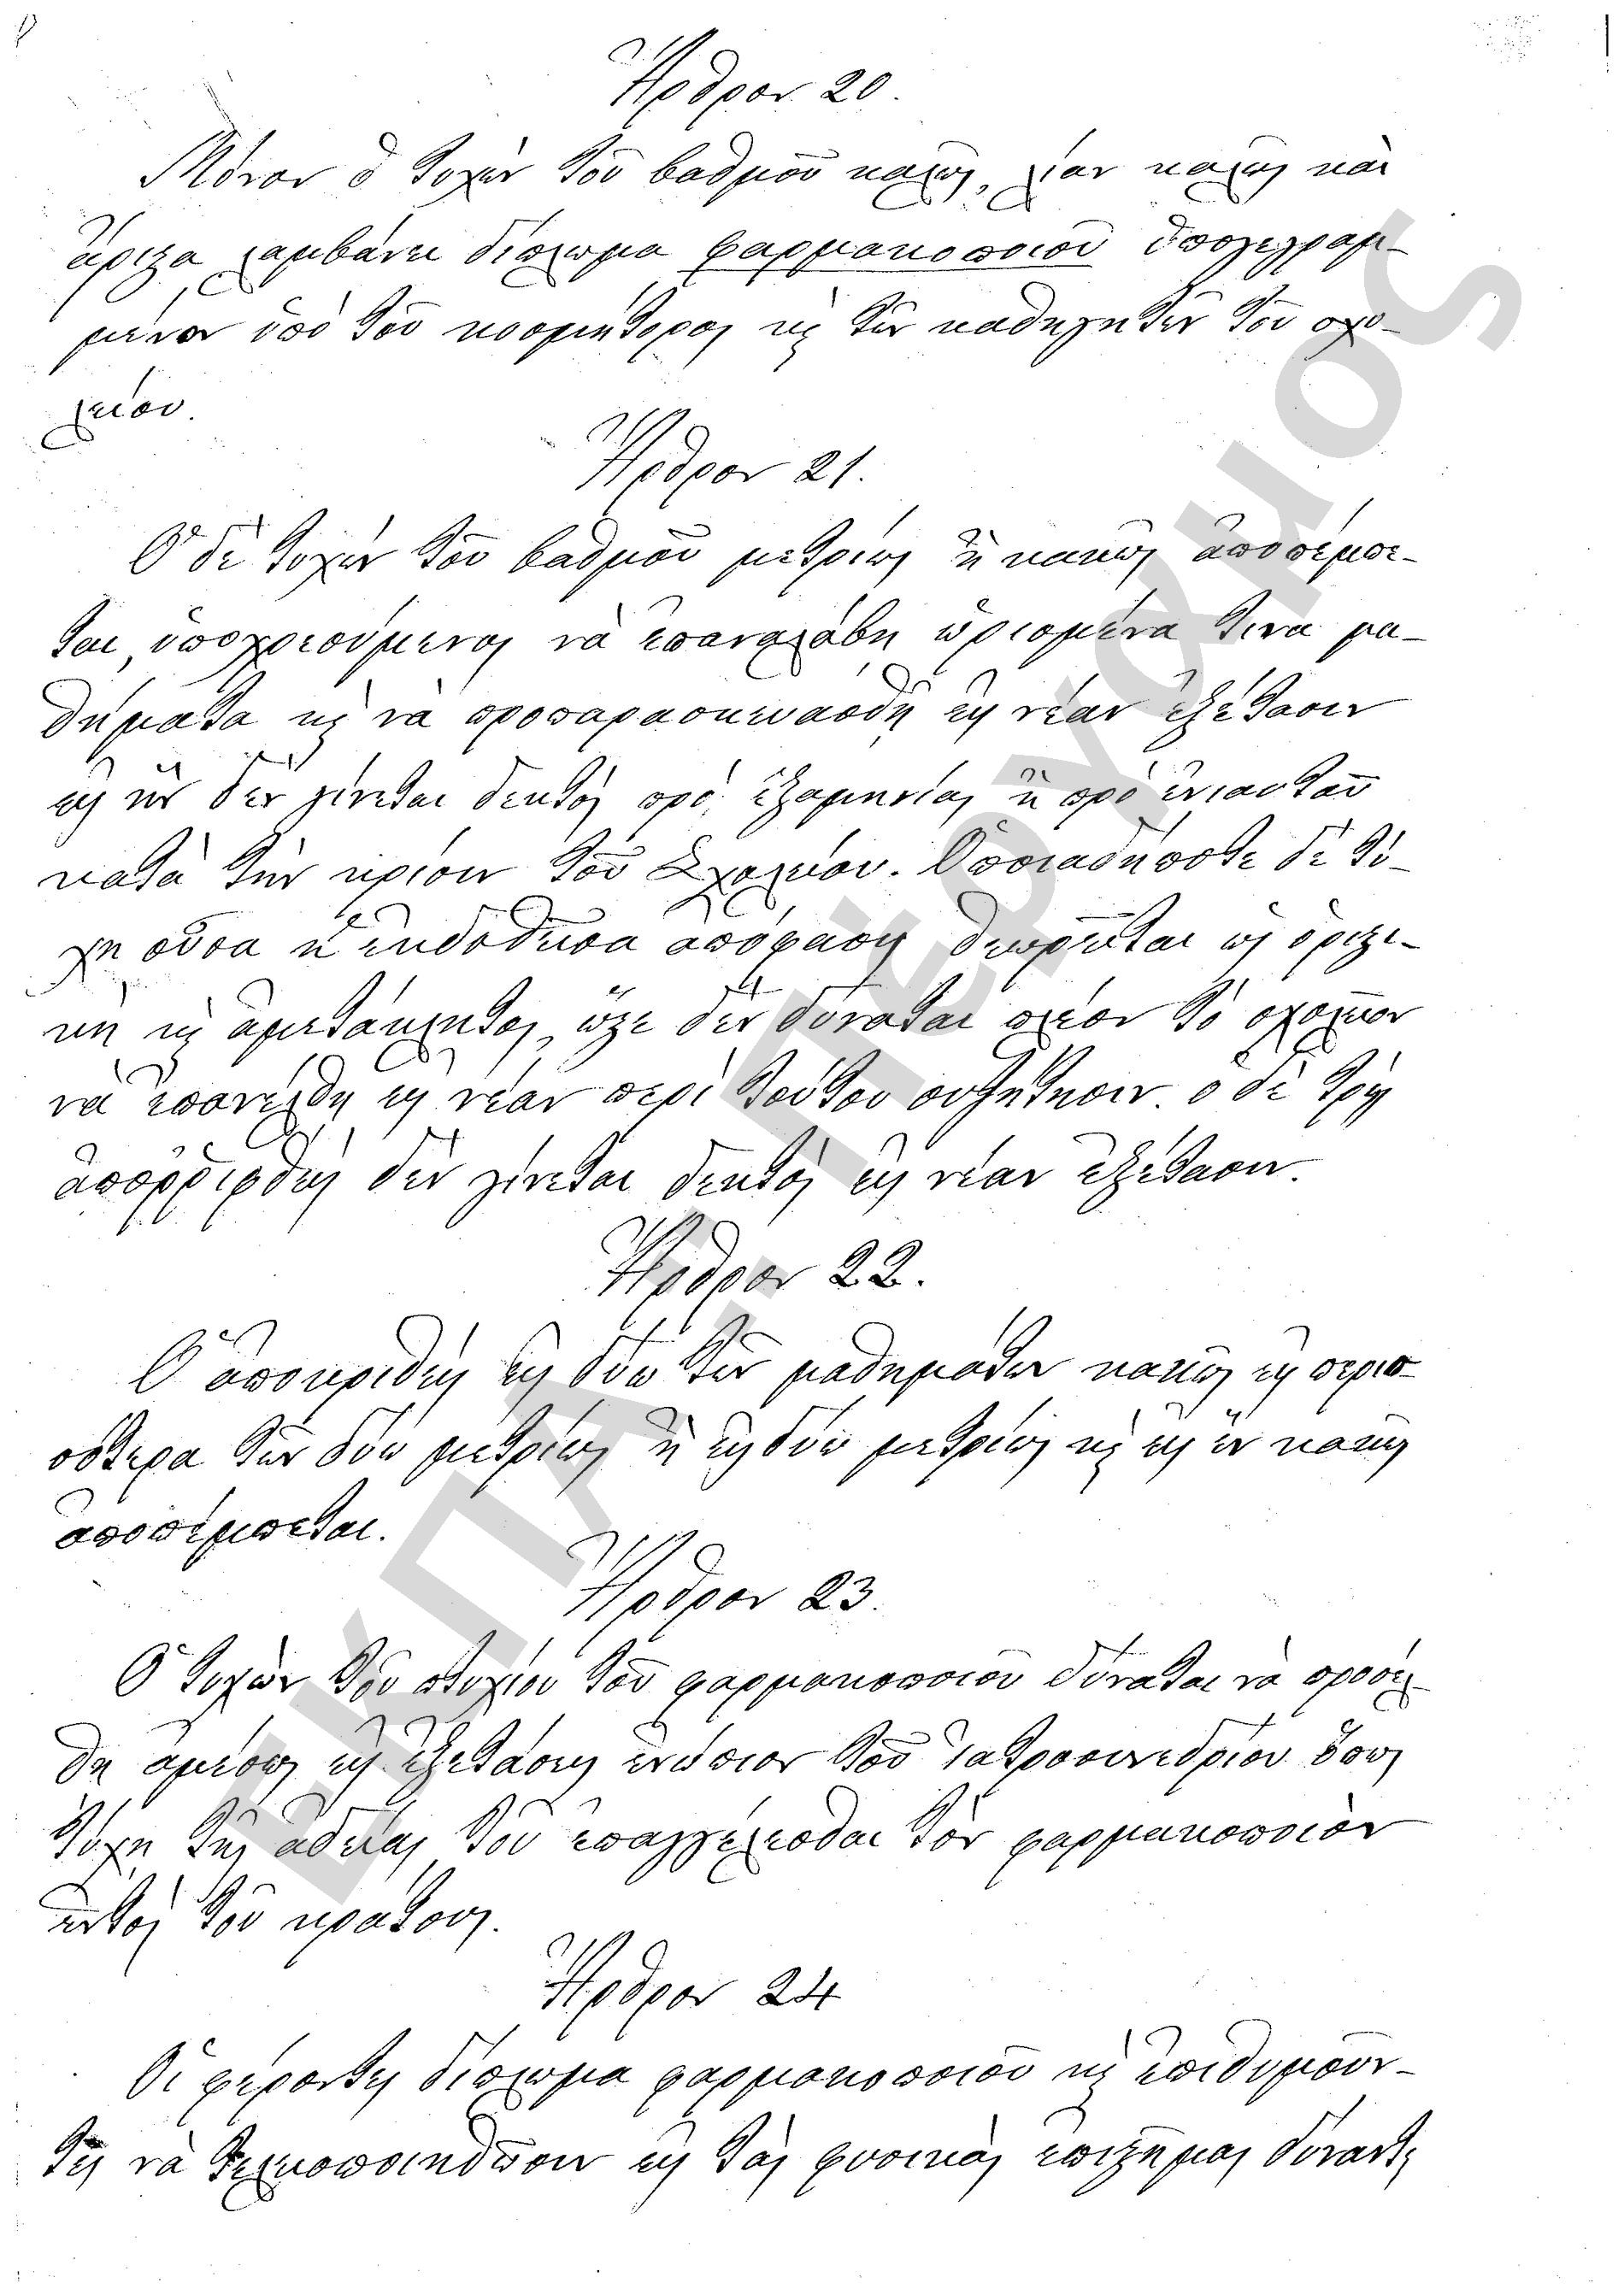 Ἄρθρον 20.
Μόνον ὁ τυχὼν τοῦ βαθμοῦ καλῶς, λίαν καλῶς καὶ
ἄριστα λαμβάνει δίπλωμα φαρμακοποιοῦ ὑπογεγραμ-
μένον ὑπὸ τοῦ κοσμήτορος καὶ τῶν καθηγητῶν τοῦ σχο-
λείου.
Ἄρθρον 21.
Ὁ δὲ τυχὼν τοῦ βαθμοῦ μετρίως ἢ κακῶς ἀποπέμπε-
ται, ὑποχρεούμενος νὰ ἐπαναλάβῃ ὡρισμένα τινα μα-
θήματα καὶ νὰ προπαρασκευασθῇ εἰς νέαν ἐξέτασιν
εἰς ἣν δὲν γίνεται δεκτὸς πρὸ ἑξαμηνίας ἢ πρὸ ἐνιαυτοῦ
κατὰ τὴν κρίσιν τοῦ Σχολείου. Ὁποιαδήποτε δὲ τύ-
χῃ οὖσα ἡ ἐκδοθεῖσα ἀπόφασις θεωρεῖται ὡς ὁριστι-
κὴ καὶ ἀμετάκλητος, ὥστε δὲν δύναται πλέον τὸ σχολεῖον
νὰ ἐπανέλθῃ εἰς νέαν περὶ τούτου συζήτησιν. ὁ δὲ τρὶς
ἀπορριφθεὶς δὲν γίνεται δεκτὸς εἰς νέαν ἐξέτασιν.
Ἄρθρον 22.
Ὁ ἀποκριθεὶς εἰς δύω τῶν μαθημάτων κακῶς εἰς περισ-
σότερα τῶν δύω μετρίως ἢ εἰς δύω μετρίως καὶ εἰς ἓν κακῶς
ἀποπέμπεται.
Ἄρθρον 23.
Ὁ τυχὼν τοῦ πτυχίου τοῦ φαρμακοποιοῦ δύναται νὰ προσέλ-
θῃ ἀμέσως εἰς ἐξετάσεις ἐνώπιον τοῦ Ἰατροσυνεδρίου ὅπως
τύχῃ τῆς ἀδείας τοῦ ἐπαγγέλλεσθαι τὸν φαρμακοποιὸν
ἐντὸς τοῦ κράτους.
Ἄρθρον 24
Οἱ φέροντες δίπλωμα φαρμακοποιοῦ καὶ ἐπιθυμοῦν-
τες νὰ τελειοποιηθῶσιν εἰς τὰς φυσικὰς ἐπιστήμας δύναντ
ΕΚΠΑ-Πέργαμος